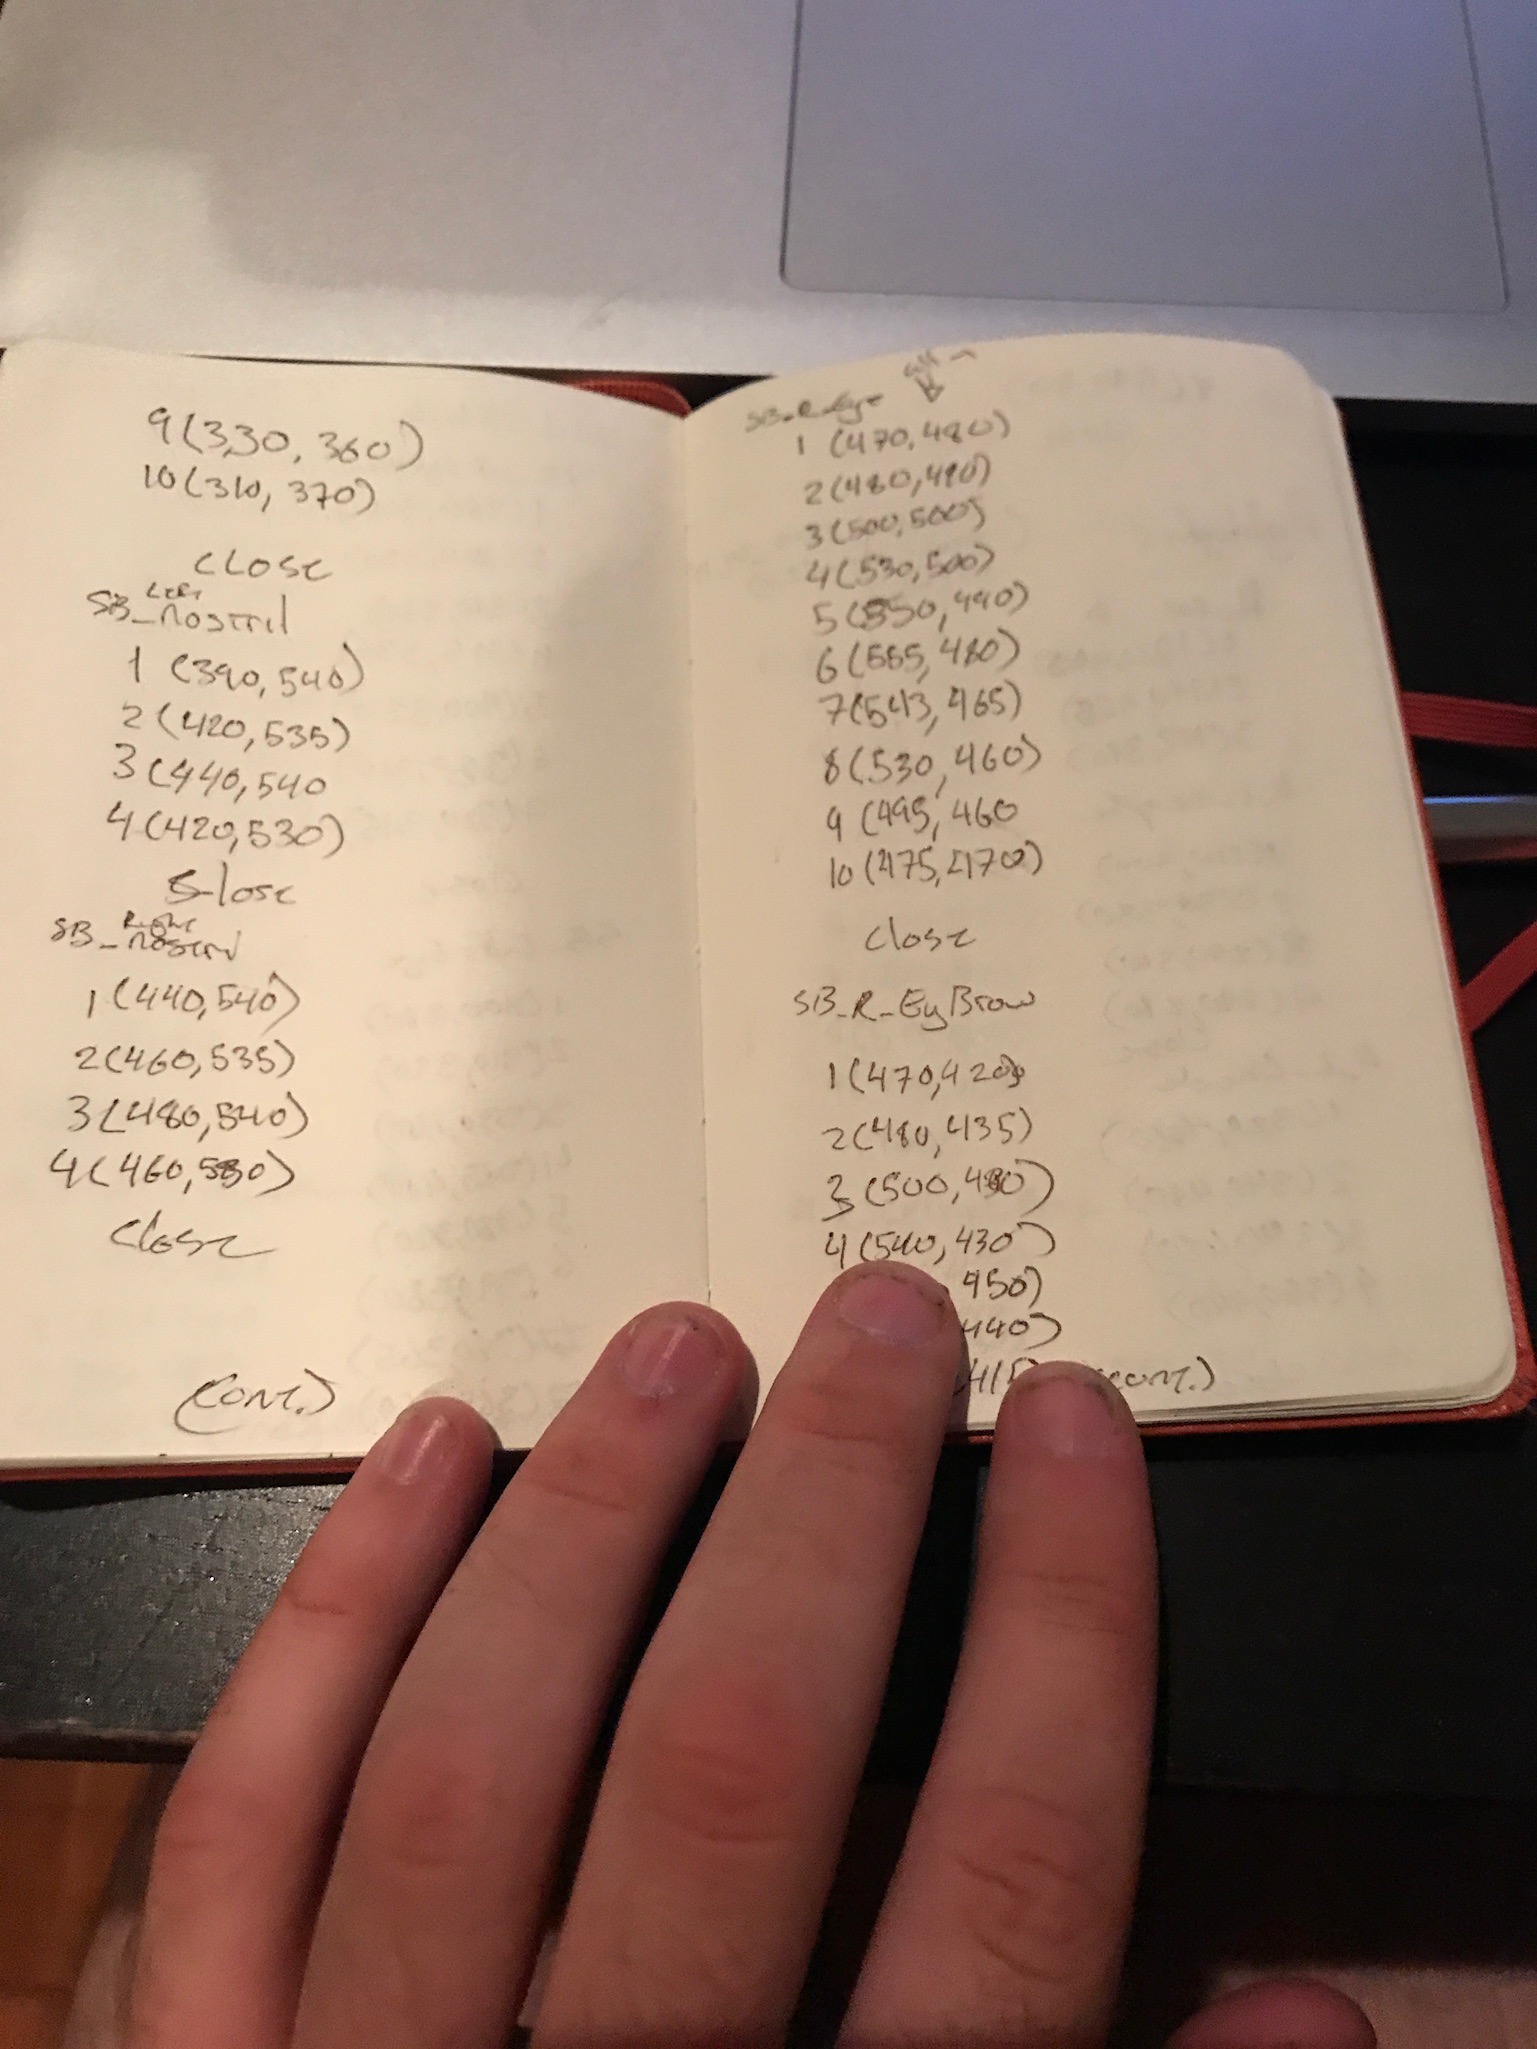 9(330, 360)
10(310, 370)
close
Left
SB_nostril
1 (390,540)
2(420,535)
3(440,540
4(420,530)
close
Right
SB_nostril
1(440,540)
2(460,535)
3(480,540)
4(460,530)
close
(cont.)
SB_R_Eye
1 (470,480)
2(480,490)
3(500,500)
4(530,500)
5(550,490)
6(555,480)
7(543,465)
8(530,460)
9(495,460
10(475,470)
close
SB_R_EyBrow
1(470,420)
2(480,435)
3(500,430)
4(540,430)
,450)
,440)
,415 (cont.)